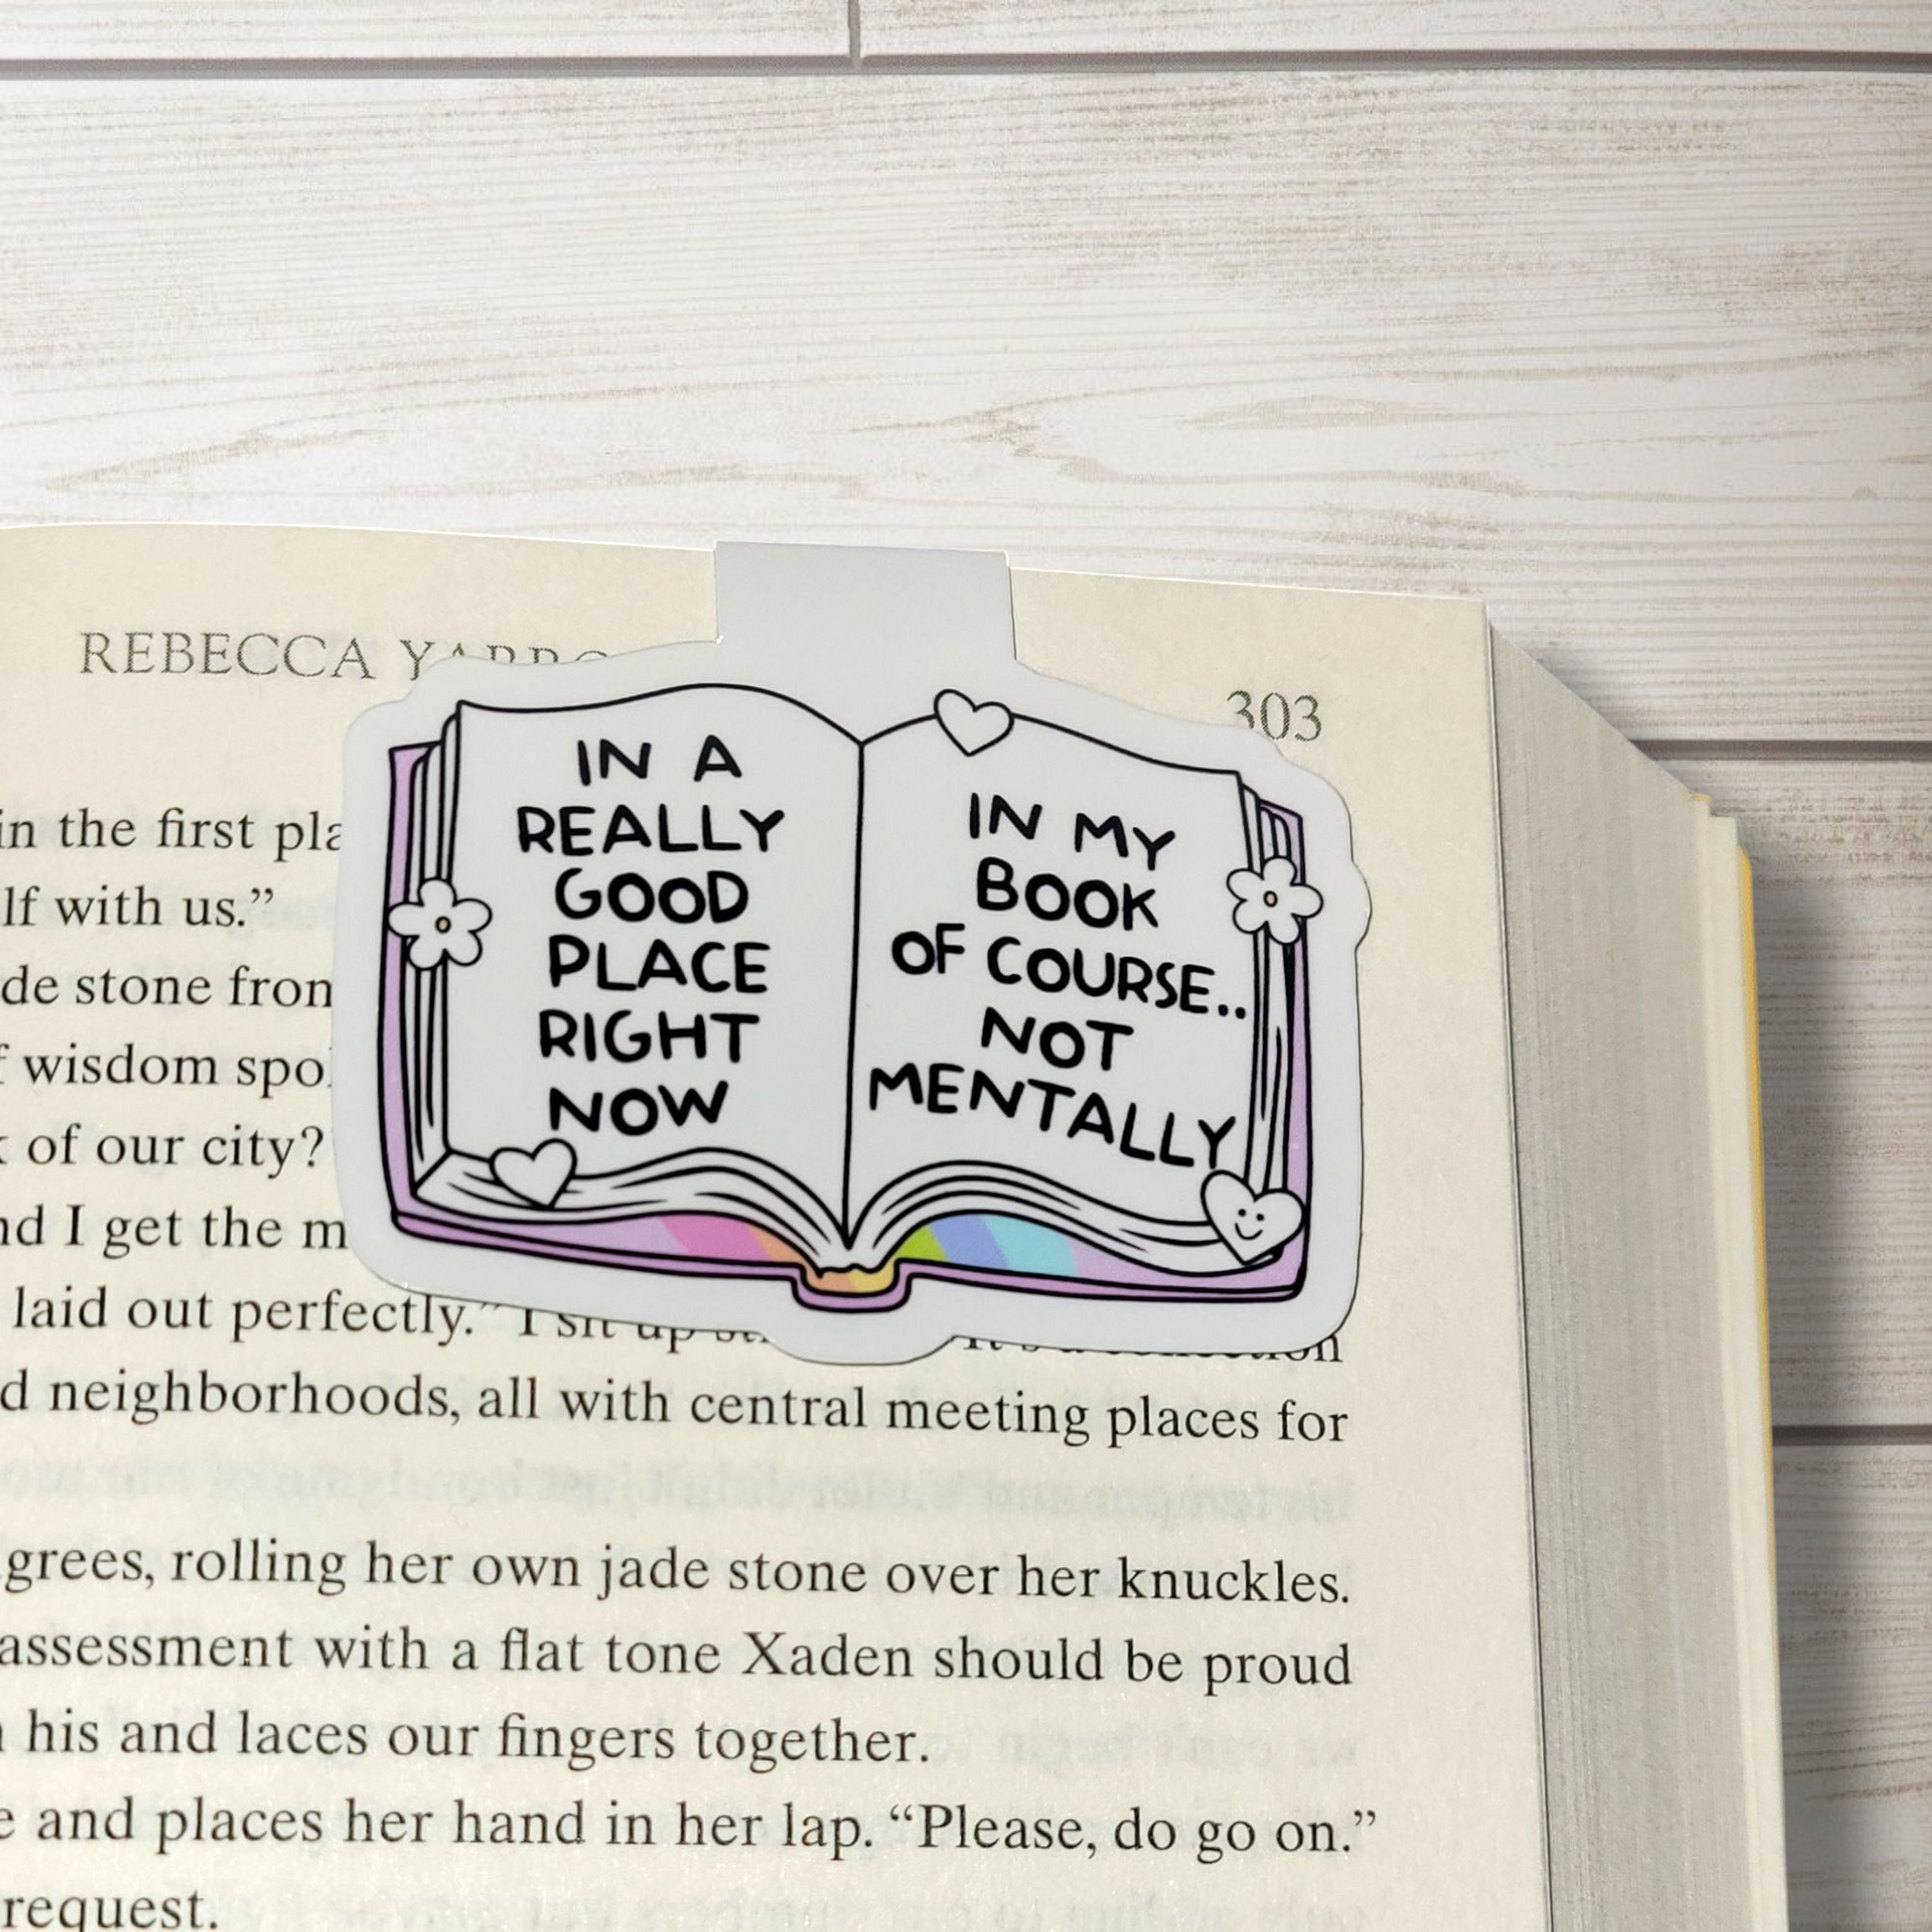 REBECCA
303
IN A
REALLY
GOOD
PLACE
RIGHT
NOW
IN MY
BOOK
OF COURSE..
NOT
MENTALLY
in the first
lf with us.”
de stone
wisdom
of our city?
I get the
laid out perfectly.” I sit up
d neighborhoods, all with central meeting places for
grees, rolling her own jade stone over her knuckles.
assessment with a flat tone Xaden should be proud
his and laces our fingers together.
e and places her hand in her lap. “Please, do go on.”
request.